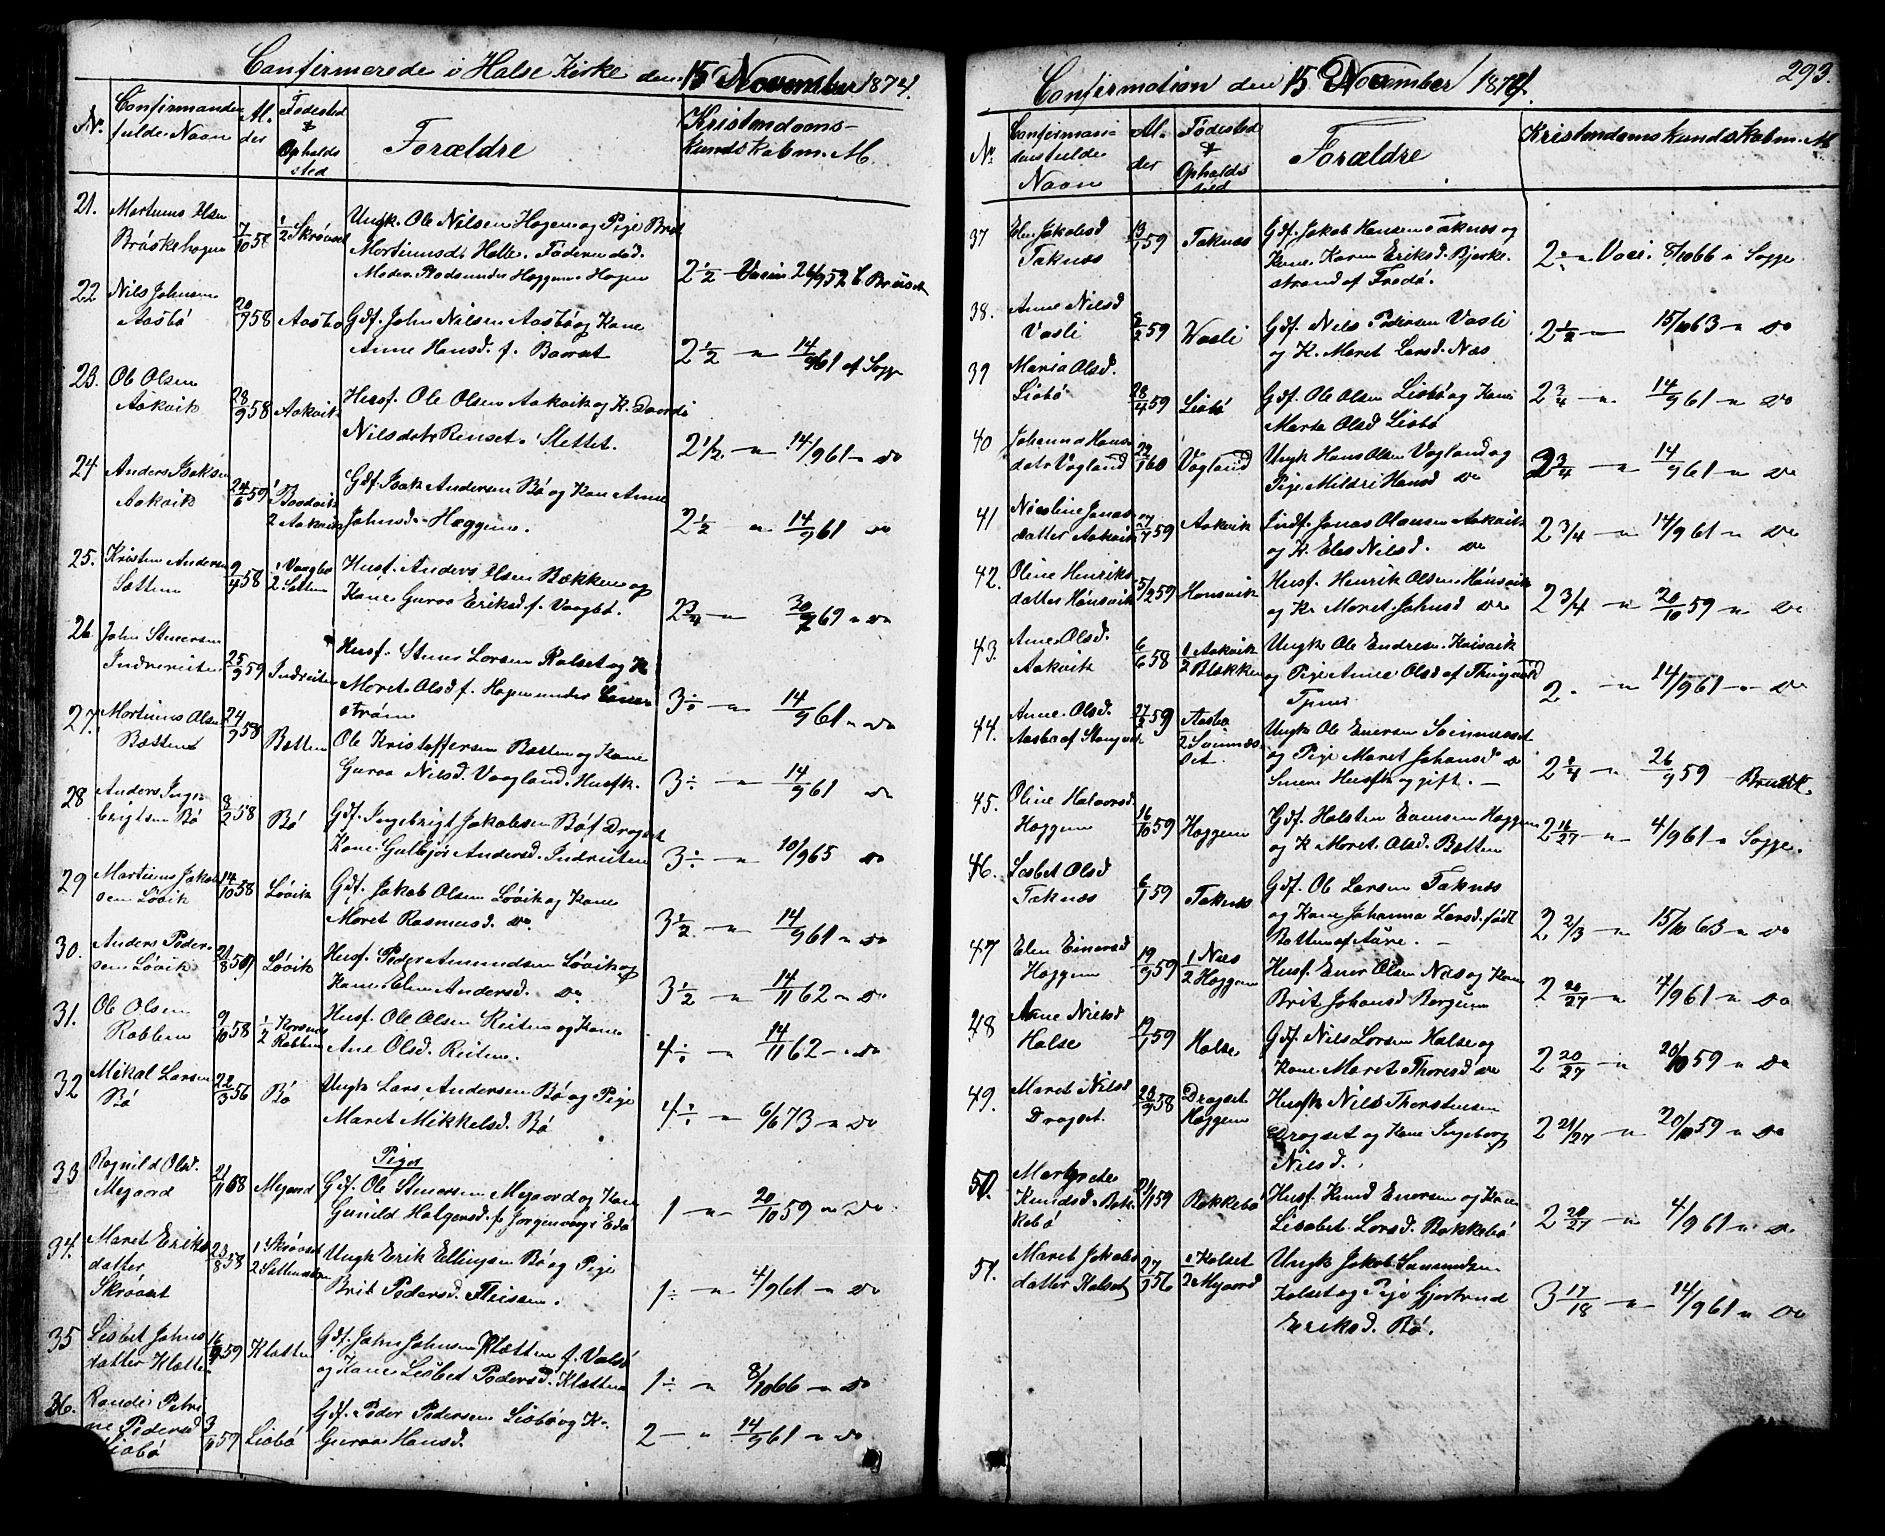 Confirmerede i Halse Kirke den 15 November 1874.
Nr.
Confirmandens
fulde Navn
Al-
der
Födested
&
Opholds
sted
Forældre
Kristendoms-
kundskab m. M.
21.
Martinus
7/10 58
1/2 Skrøvset
Ungk. Ole Nilsen Hagen og Pige Brit
2 1/2
22
Nils Johnsen
Aasbö
20/9 58
Aasbö
Gdf. John Nilsen Aasbö og Kone
Anne Hansd. f.
2 1/2 - " 14/9 61 af Sogge
23.
Ole Olsen
Aakvik
28/9 58
Aakvik
Husf. Ole Olsen Aakvik og K.
Nilsdatr Renset
2 1/2 - " 14/9 61 - do
24
Anders Isaksen
Aakvik
24/6 59
1 Boodvik
2 Aakvik
Gdf. Isak Andersen Bö og Kone Anne
Johnsd. Hæggem.
2 1/2 - " 14/9 61 do
25.
Kristen Andersen
Sættem
9/4 58
1 Vaagbö
2 Sættem
Husf. Anders Olsen Bækken og
Kone Guroe Eriksd. f. Vaagbö.
2 3/4 - "
26
John Stenersen
Indrereiten
25/9 59
Indreiten
Husf. Stener Larsen Kalset og K
Maret Olsd. f. Hagen under
3 ÷ - " 14/9 61 - do
27.
Martinus Olsen
Bætten
24/9 58
Bætten
Ole Kristoffersen Bætten og Kone
Guroe Nilsd. Vaagland. Husfk.
3 ÷ - " 14/9 61 do
28
Anders Inge-
brigtsen Bö
8/2 58
Bö
Gdf. Ingebrigt Jakobsen Bö f. Drogset
Kone Gulbjör Andersd. Indreiten
3 ÷ - " 10/9 65 do
29
Martinus Jakob-
sen Lövik
14/10 58
Lövik
Gdf. Jakob Olsen Lövik og Kone
Maret Rasmusd. do
3 1/2 - " 14/9 61 - do
30.
Anders Peder-
sen Lövik
Lövik
Husf. Peder Amundsen Lövik og
Kone Elen Andersd. do
3 1/2 - " 14/11 62 - do
31.
Ole Olsen
Rablem
9/10 58
1 Korsnes
2 Rablem
Husf. Ole Olsen Reiten og Kone
Ane Olsd. Reiten.
4 ÷ - " 14/11 62 - do
32
Mikal Larsen
Bö
22/3 56
Bö
Ungk. Lars Andersen Bö og Pige
Maret Mikkelsd. Bö
4 ÷ - " 6/6 73 - do
Piger
33
Ragnild Olsd.
Megaard
21/11 58
Megaard
Gdf. Ole Stenersen Megaard og Kone
Gunild Holgersd. f. Jörgenvaag i Edö
1 - " 20/10 59 - do
34.
Maret Eriks
datter
Skrövset
23/8 58
1 Skrövset
2
Ungk Erik Ellingsen Bö og Pige
Brit Pedersd. Fleissen.
1 ÷ - " 4/9 61 - do
35
Lisbet Johns
datter Klætten
16/9 59
Klætten
Gdf. John Johnsen Klætten f. Valsö
og Kone Lisbet Pedersd. Klætten
1 ÷ - " 8/10 66 - do
36.
Randi Petri
ne Pedersd
Lisbö
Lisbö
Gdf. Peder Pedersen Lisbö og K.
Guroe Hansd.
2 - " 14/9 61 - do
Confirmation den 15 November 1874.
293.
Nr
Confirman-
dens fulde
Navn
Al-
der
Födested
&
Opholds
sted
Forældre
Kristendomskundskab m. M
37
Elen Jakobsd
Taknæs
13/1 59
Taknæs
Gdf. Jakob Hansen Taknæs og
Kone Karen Eriksd. Bjerke-
strand af Fredö.
2 ÷ " Vacc. 8/10 66 i Sogge
38.
Anne Nilsd
Vasli
8/2 59
Vasli
Gdf. Nils Pedersen Vasli
og K. Maret Larsd. Næs
2 1/2 - 15/10 63 - do
39
Maria Olsd.
Lisbö
28/4 59
Lisbö
Gdf. Ole Olsen Lisbö og Kone
Marte Olsd Lisbö
2 3/4 - " 14/9 61 - do
40
Johanna Hans-
datr Vagland
22/1 60
Vagland
Ungk Hans Olsen Vagland og
Pige Mildri Hansd do
2 3/4 - " 14/9 61 - do
41
Nicoline Jonas-
datter Aakvik
Aakvik
Indf. Jonas Olansen Aakvik
og K. Eles Nilsd. do
2 3/4 - " 14/9 61 - do
42.
Oline Henriks
datter Hönsvik
5/2 59
Honsvik
Husf. Henrik Olsen Hönsvik
og K. Maret Johnsd do
2 3/4 - " 20/10 59 - do
43.
Ane Olsd.
Aakvik
6/6 58
1 Aakvik
2 Blekken
Ungk Ole Endresen Kvisvik
og Pige Anne Olsd af Thingvold
2. - " 14/9 61 - do
44.
Anne Olsd.
Aasbö af Stangvik
27/2 59
Aasbö
2 Svinnes-
set.
Ungk Ole Enersen Svinnesset
og Pige Maret Johansd do
Senere Husfk og gift. -
2 1/4 - " 26/9 59 - Bruset.
45.
Oline Halvorsd.
Hæggem
16/10 59
Hæggem
Gdf. Halsten Evensen Hæggem
og K. Maret Olsd. Bætten
2 16/27 - " 4/9 61 - Sogge.
46.
Lisbet Olsd
Taknæs
6/1 59
Taknæs
Gdf. Ole Larsen Taknæs
og Kone Johanna Larsd. födt
Botten af Aure. -
2 2/3 - " 15/10 63 - do
47
Elen Einersd
Hæggem
19/9 59
1 Næs
2 Hæggem
Husf. Ener Olsen Næs og Kone
Brit Johansd Bergem
2 20/27 - " 4/9 61 - do
48
Anne Nielsd
Halse
19/1 59
Halse
Gdf. Nils Larsen Halse og
Kone Maret Thoresd do
2 20/27 - " 20/10 59 - do
49.
Maret Nilsd
Drogset.
23/9 58
Drogset
Hæggem
Husfk Nils Thorstensen
Drogset og Kone Ingeborg
Nilsd.
2 21/27 - " 20/10 59 - do
50.
Margrete
Knudsd. Bak-
kebö
21/1 59
Bakkebö
Husf. Knud Enersen og Kone
Lisabet Larsd. Bakkebö
2 20/27 - " 4/9 61 - do
51.
Maret Jakobs
datter Kalset
27/9 56
1 Kalset
2 Megaard
Ungk Jakob Samuelsen
Kalset og Pige Gjertrud
Eriksd. Bö.
3 17/18 - " 14/9 61 - do